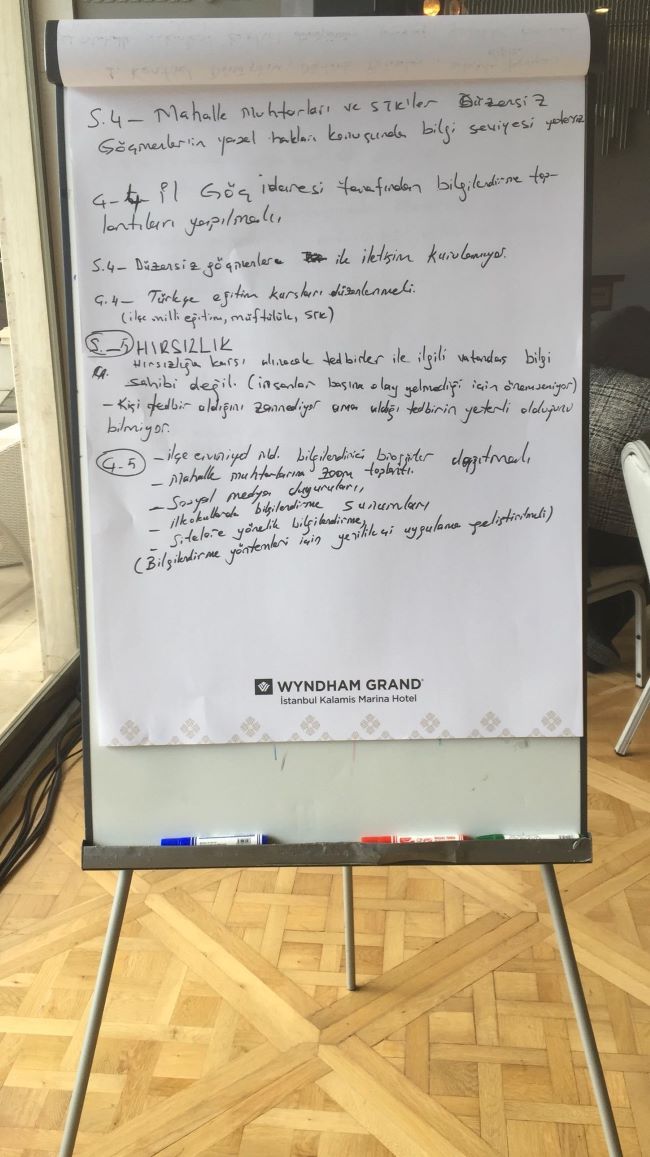 S.4 – Mahalle muhtarları ve STK'ler Düzensiz
Göçmenlerin yasal hakları konusunda bilgi seviyesi yetersiz
Ç-4 İl Göç idaresi tarafından bilgilendirme top-
lantıları yapılmalı,
S.4 – Düzensiz göçmenlere ile iletişim kurulamıyor.
Ç.4 – Türkçe eğitim kursları düzenlenmeli.
(ilçe milli eğitim, müftülük, STK)
S.–5 HIRSIZLIK
Hırsızlığa karşı alınacak tedbirler ile ilgili vatandaş bilgi
sahibi değil. (insanlar başına olay gelmediği için önemseniyor)
– Kişi tedbir aldığını zannediyor ama aldığı tedbirin yeterli olduğunu
bilmiyor.
Ç.5 – ilçe emniyet md. bilgilendirici broşürler dağıtmalı
– Mahalle muhtarlarına zoom toplantı.
– Sosyal medya duyuruları,
– ilkokullarda bilgilendirme sunumları
– Sitelere yönelik bilgilendirme,
(Bilgilendirme yöntemleri için yenilikçi uygulama geliştirilmeli)
WYNDHAM GRAND
İstanbul Kalamış Marina Hotel